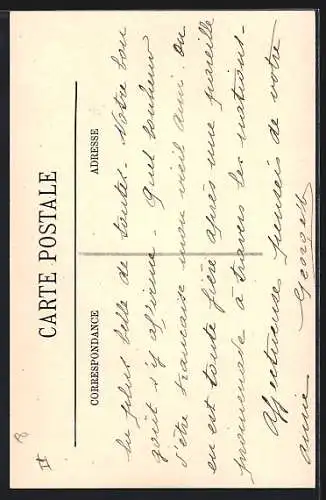 CARTE POSTALE
CORRESPONDANCE
ADRESSE
II
la plus belle de toutes. Notre bon
goût s'y affirme. Quel bonheur
d'être française mon vieil ami. On
en est toute fière après une pareille
promenade à travers les nations.
Affectueuse pensée de votre
amie Georgette